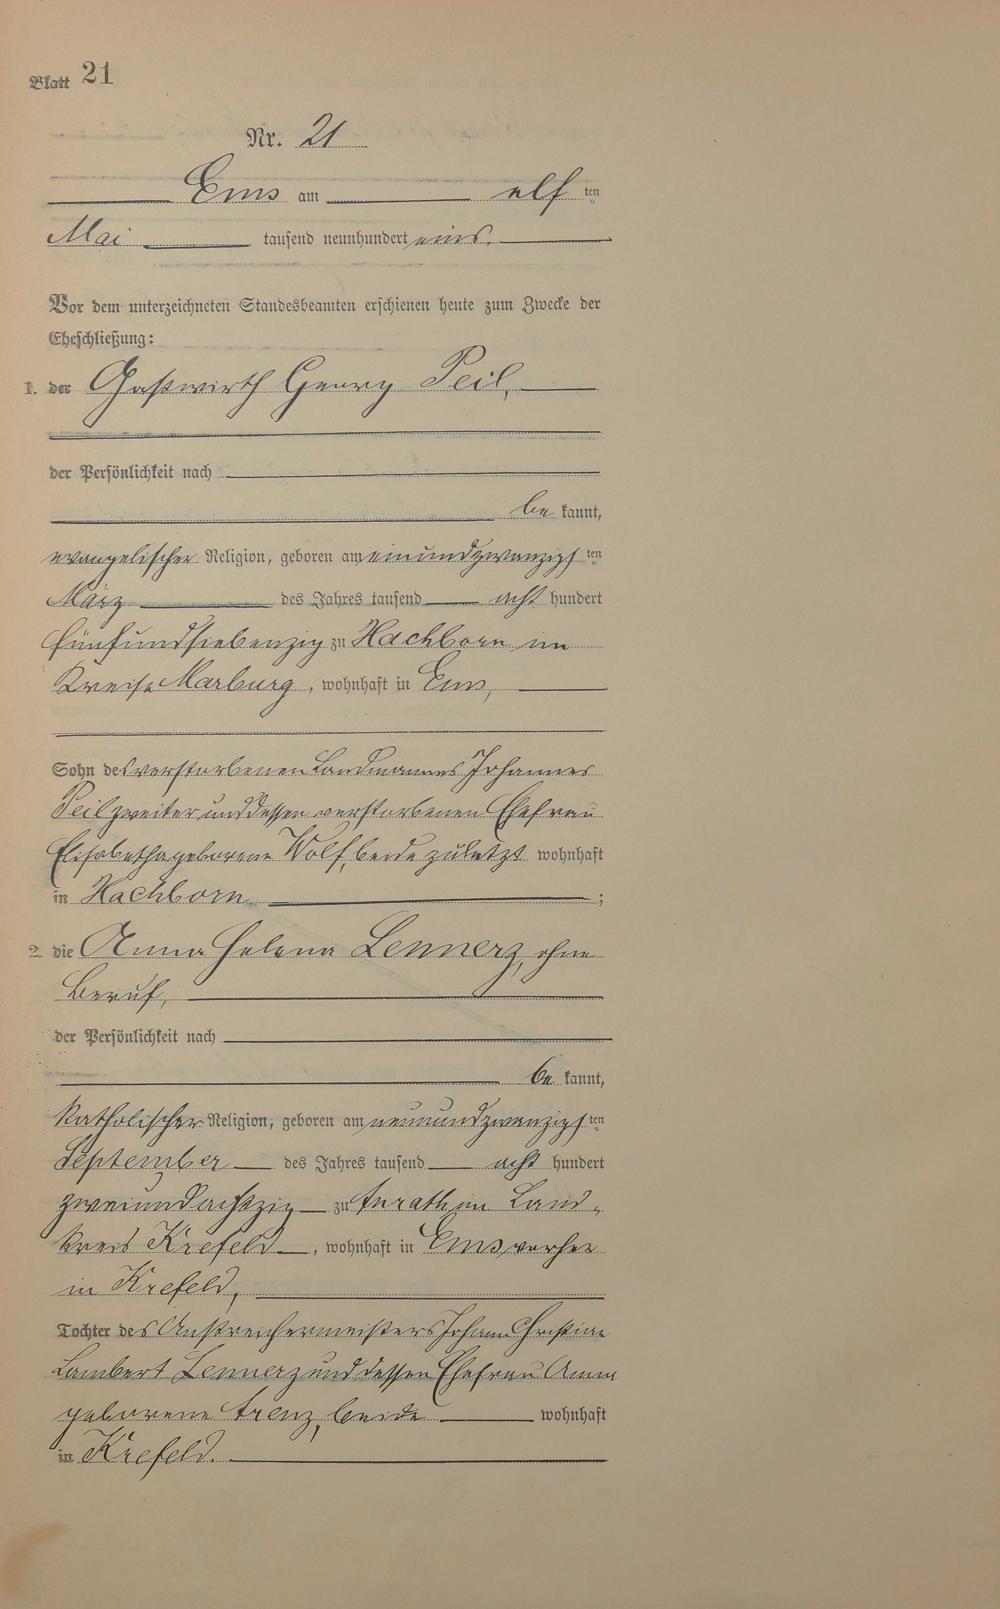 Blatt 21
Nr. 21
Ems am elf ten
Mai tausend neunhundert eins.
Vor dem unterzeichneten Standesbeamten erschienen heute zum Zwecke der
Eheschließung:
1. der Gastwirth Georg Peil,
der Persönlichkeit nach
be kannt,
evangelischer Religion, geboren am einundzwanzigs ten
März des Jahres tausend acht hundert
fünfundsiebenzig zu Hachborn im
Kreise Marburg, wohnhaft in Ems,
Sohn des verstorbenen Landmannes Johannes
Peil zweiter und dessen verstorbenen Ehefrau
Elisabetha geborene Wolf, beide zuletzt wohnhaft
in Hachborn ;
2. die Anna Helena Lennerz, ohne
Beruf,
der Persönlichkeit nach
be kannt,
katholischer Religion, geboren am neunundzwanzigs ten
September des Jahres tausend acht hundert
zweiundachtzig zu Anrath im Land-
kreis Krefeld, wohnhaft in Ems vorher
in Krefeld,
Tochter des Anstreichermeisters Johann Christian
Lambert Lennerz und dessen Ehefrau Anna
geborene Trenz, beide wohnhaft
in Krefeld.